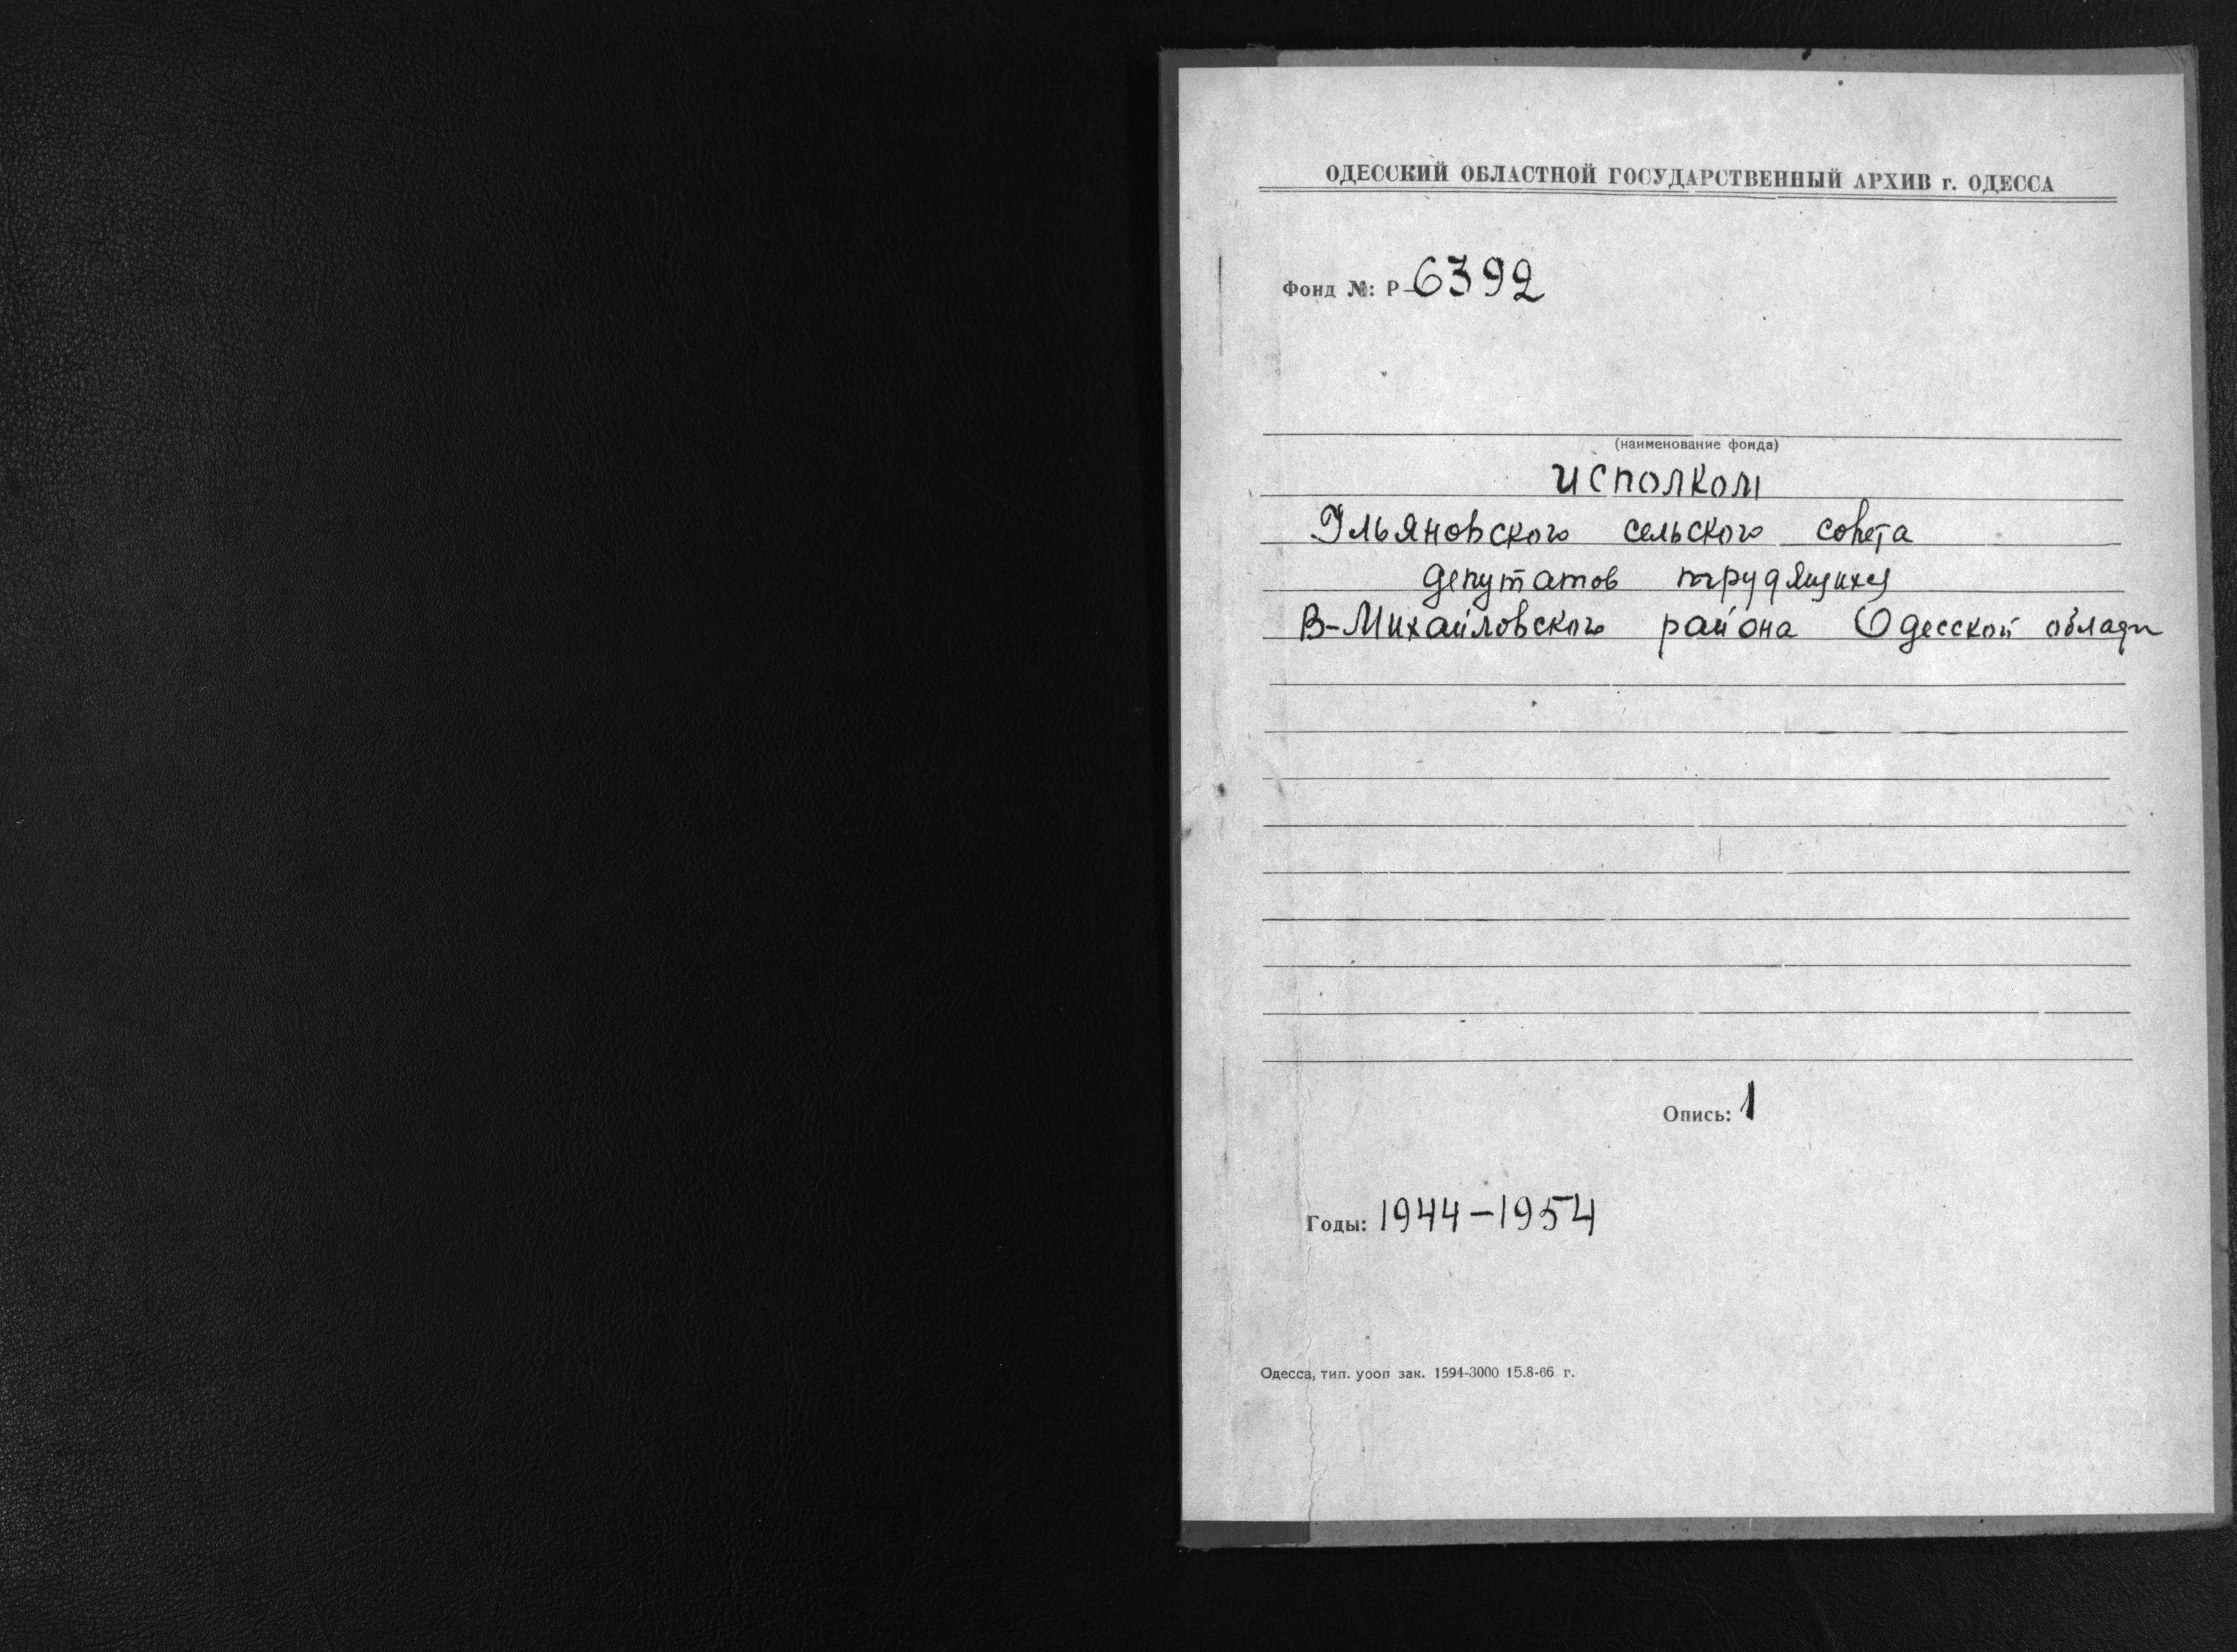 ОДЕССКИЙ ОБЛАСТНОЙ ГОСУДАРСТВЕННЫЙ АРХИВ г. ОДЕССА
Фонд №: Р-6392
(наименование фонда)
исполком
Ульяновского сельского совета
депутатов трудящихся
В-Михайловского района Одесской области
Опись: 1
Годы: 1944-1954
Одесса, тип. уооп зак. 1594-3000 15.8-66 г.